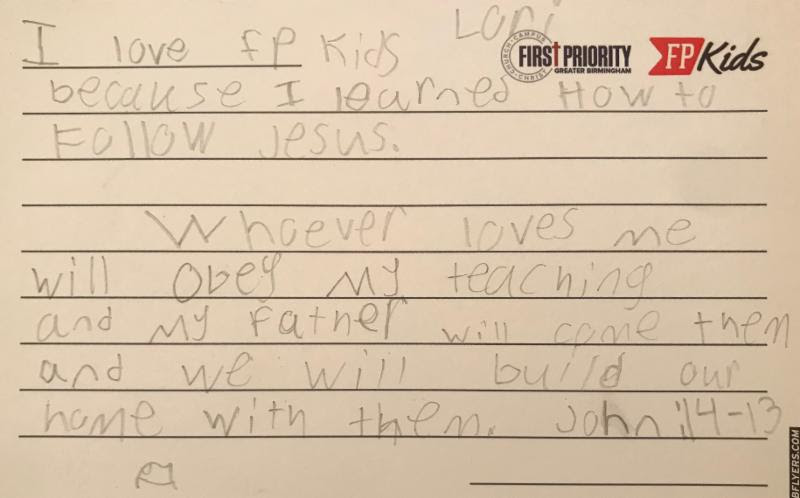 Lori
I love FP Kids
CHURCH · CAMPUS · CHRIST
FIRST PRIORITY
GREATER BIRMINGHAM
FP Kids
because I learned How to
Follow Jesus.
Whoever loves me
will obey My teaching
and My Father will come them
and we will build our
home with them. John :14-13
8FLYERS.COM